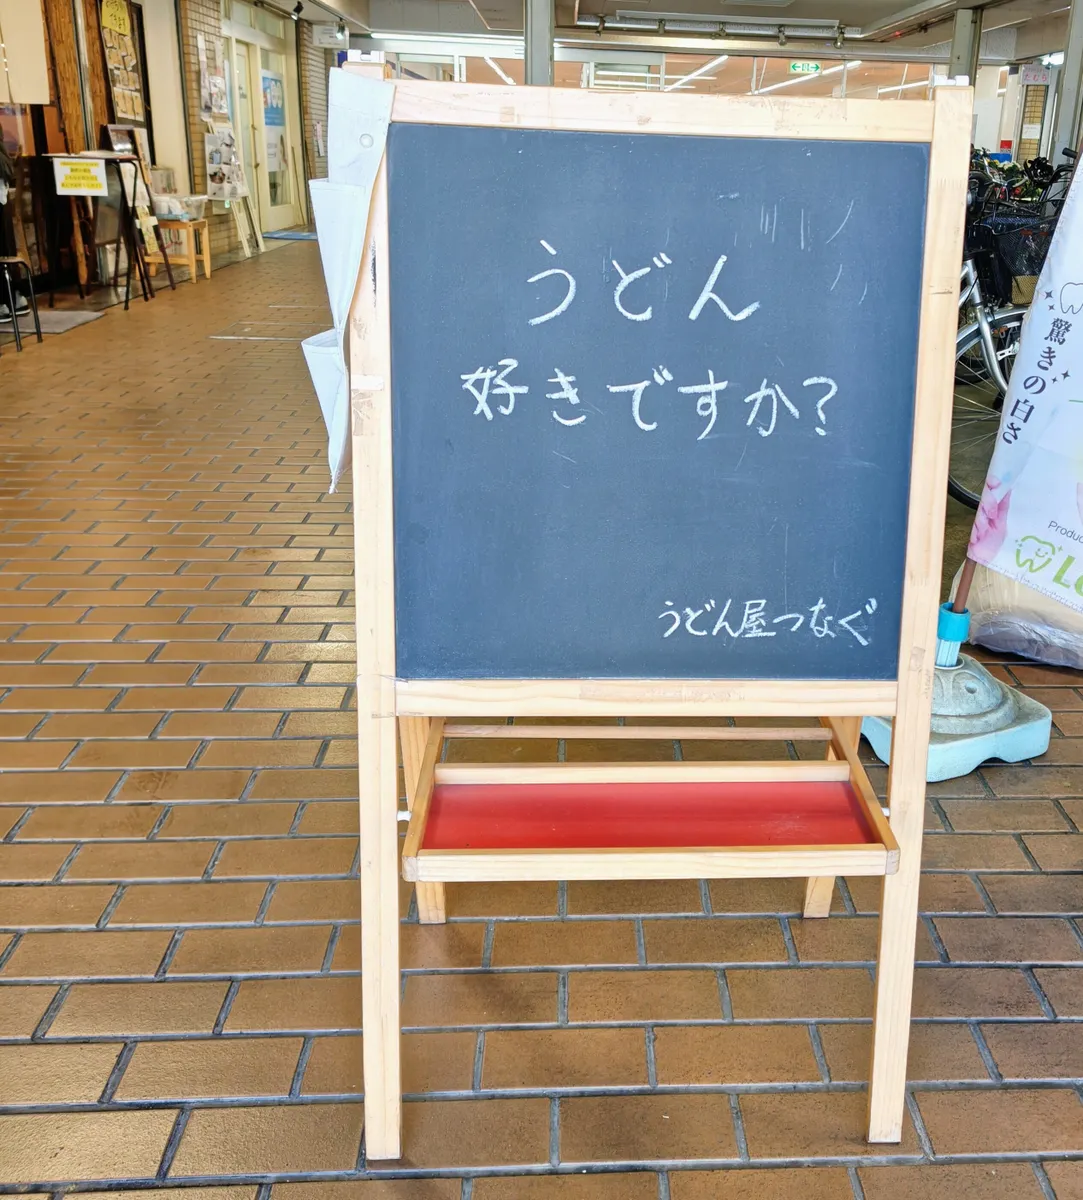 うどん
好きですか?
うどん屋つなぐ
驚きの白さ
Produc